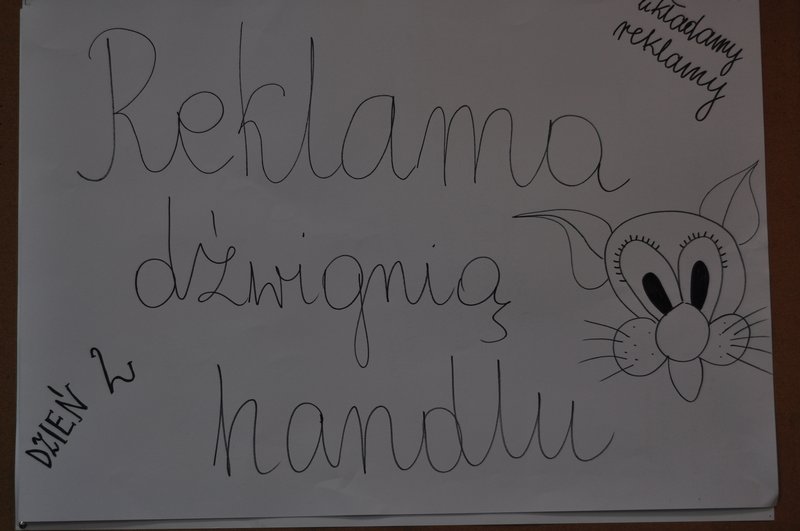 układamy
reklamy
Reklama
dźwignią
handlu
DZIEŃ 2